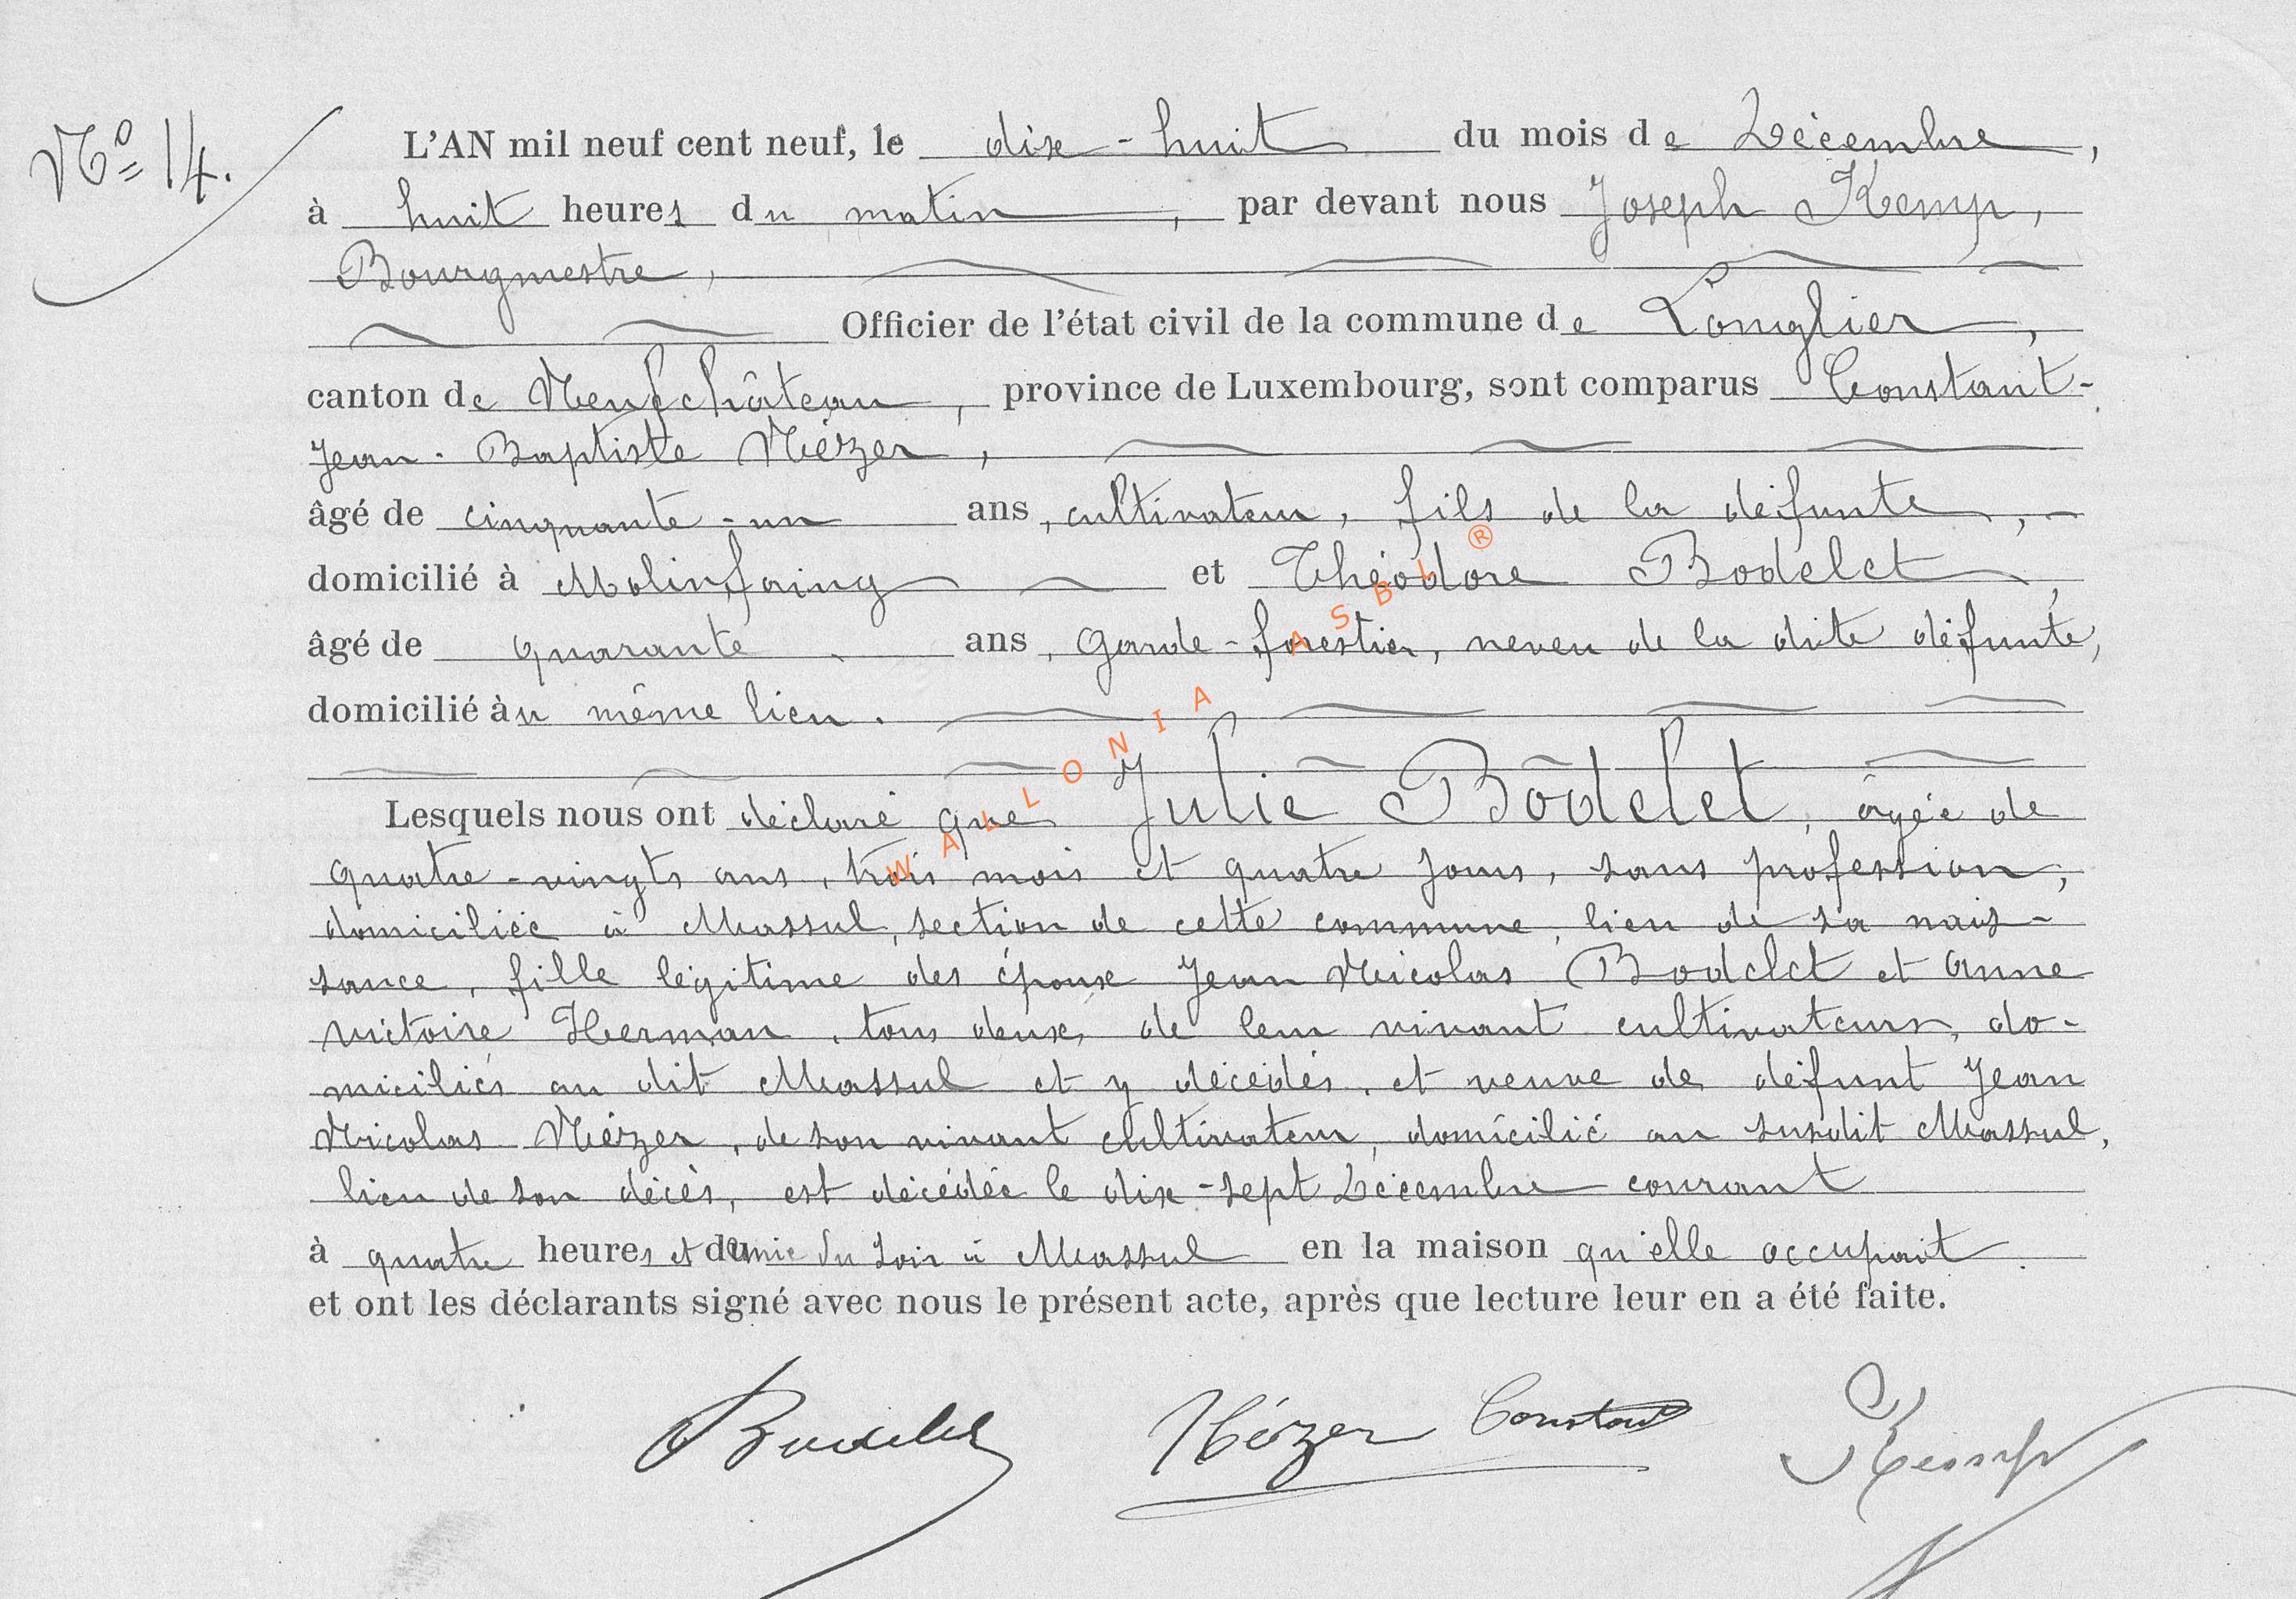 Nº 14.
L'AN mil neuf cent neuf, le dix-huit du mois de Décembre,
à huit heures du matin, par devant nous Joseph Kemp,
Bourgmestre,
Officier de l'état civil de la commune de Longlier,
canton de Neufchâteau, province de Luxembourg, sont comparus Constant-
Jean-Baptiste Nézer,
âgé de cinquante-un ans, cultivateur, fils de la défunte,
domicilié à Molinfaing et Théodore Bodelet,
âgé de quarante ans, Garde-forestier, neveu de la dite défunte,
domicilié au même lieu.
Lesquels nous ont déclaré que Julie Bodelet, âgée de
quatre-vingts ans, trois mois et quatre jours, sans profession,
domiciliée à Massul, section de cette commune, lieu de sa nais-
sance, fille légitime des époux Jean Nicolas Bodelet et Anne
Victoire Herman, tous deux, de leur vivant cultivateurs, do-
miciliés au dit Massul et y décédés, et veuve de défunt Jean
Nicolas Nézer, de son vivant cultivateur, domicilié au susdit Massul,
lieu de son décès, est décédée le dix-sept Décembre courant
à quatre heures et demie du soir à Massul en la maison qu'elle occupait.
et ont les déclarants signé avec nous le présent acte, après que lecture leur en a été faite.
Bodelet Nézer Constant Kemp
WALLONIA ASBL ®